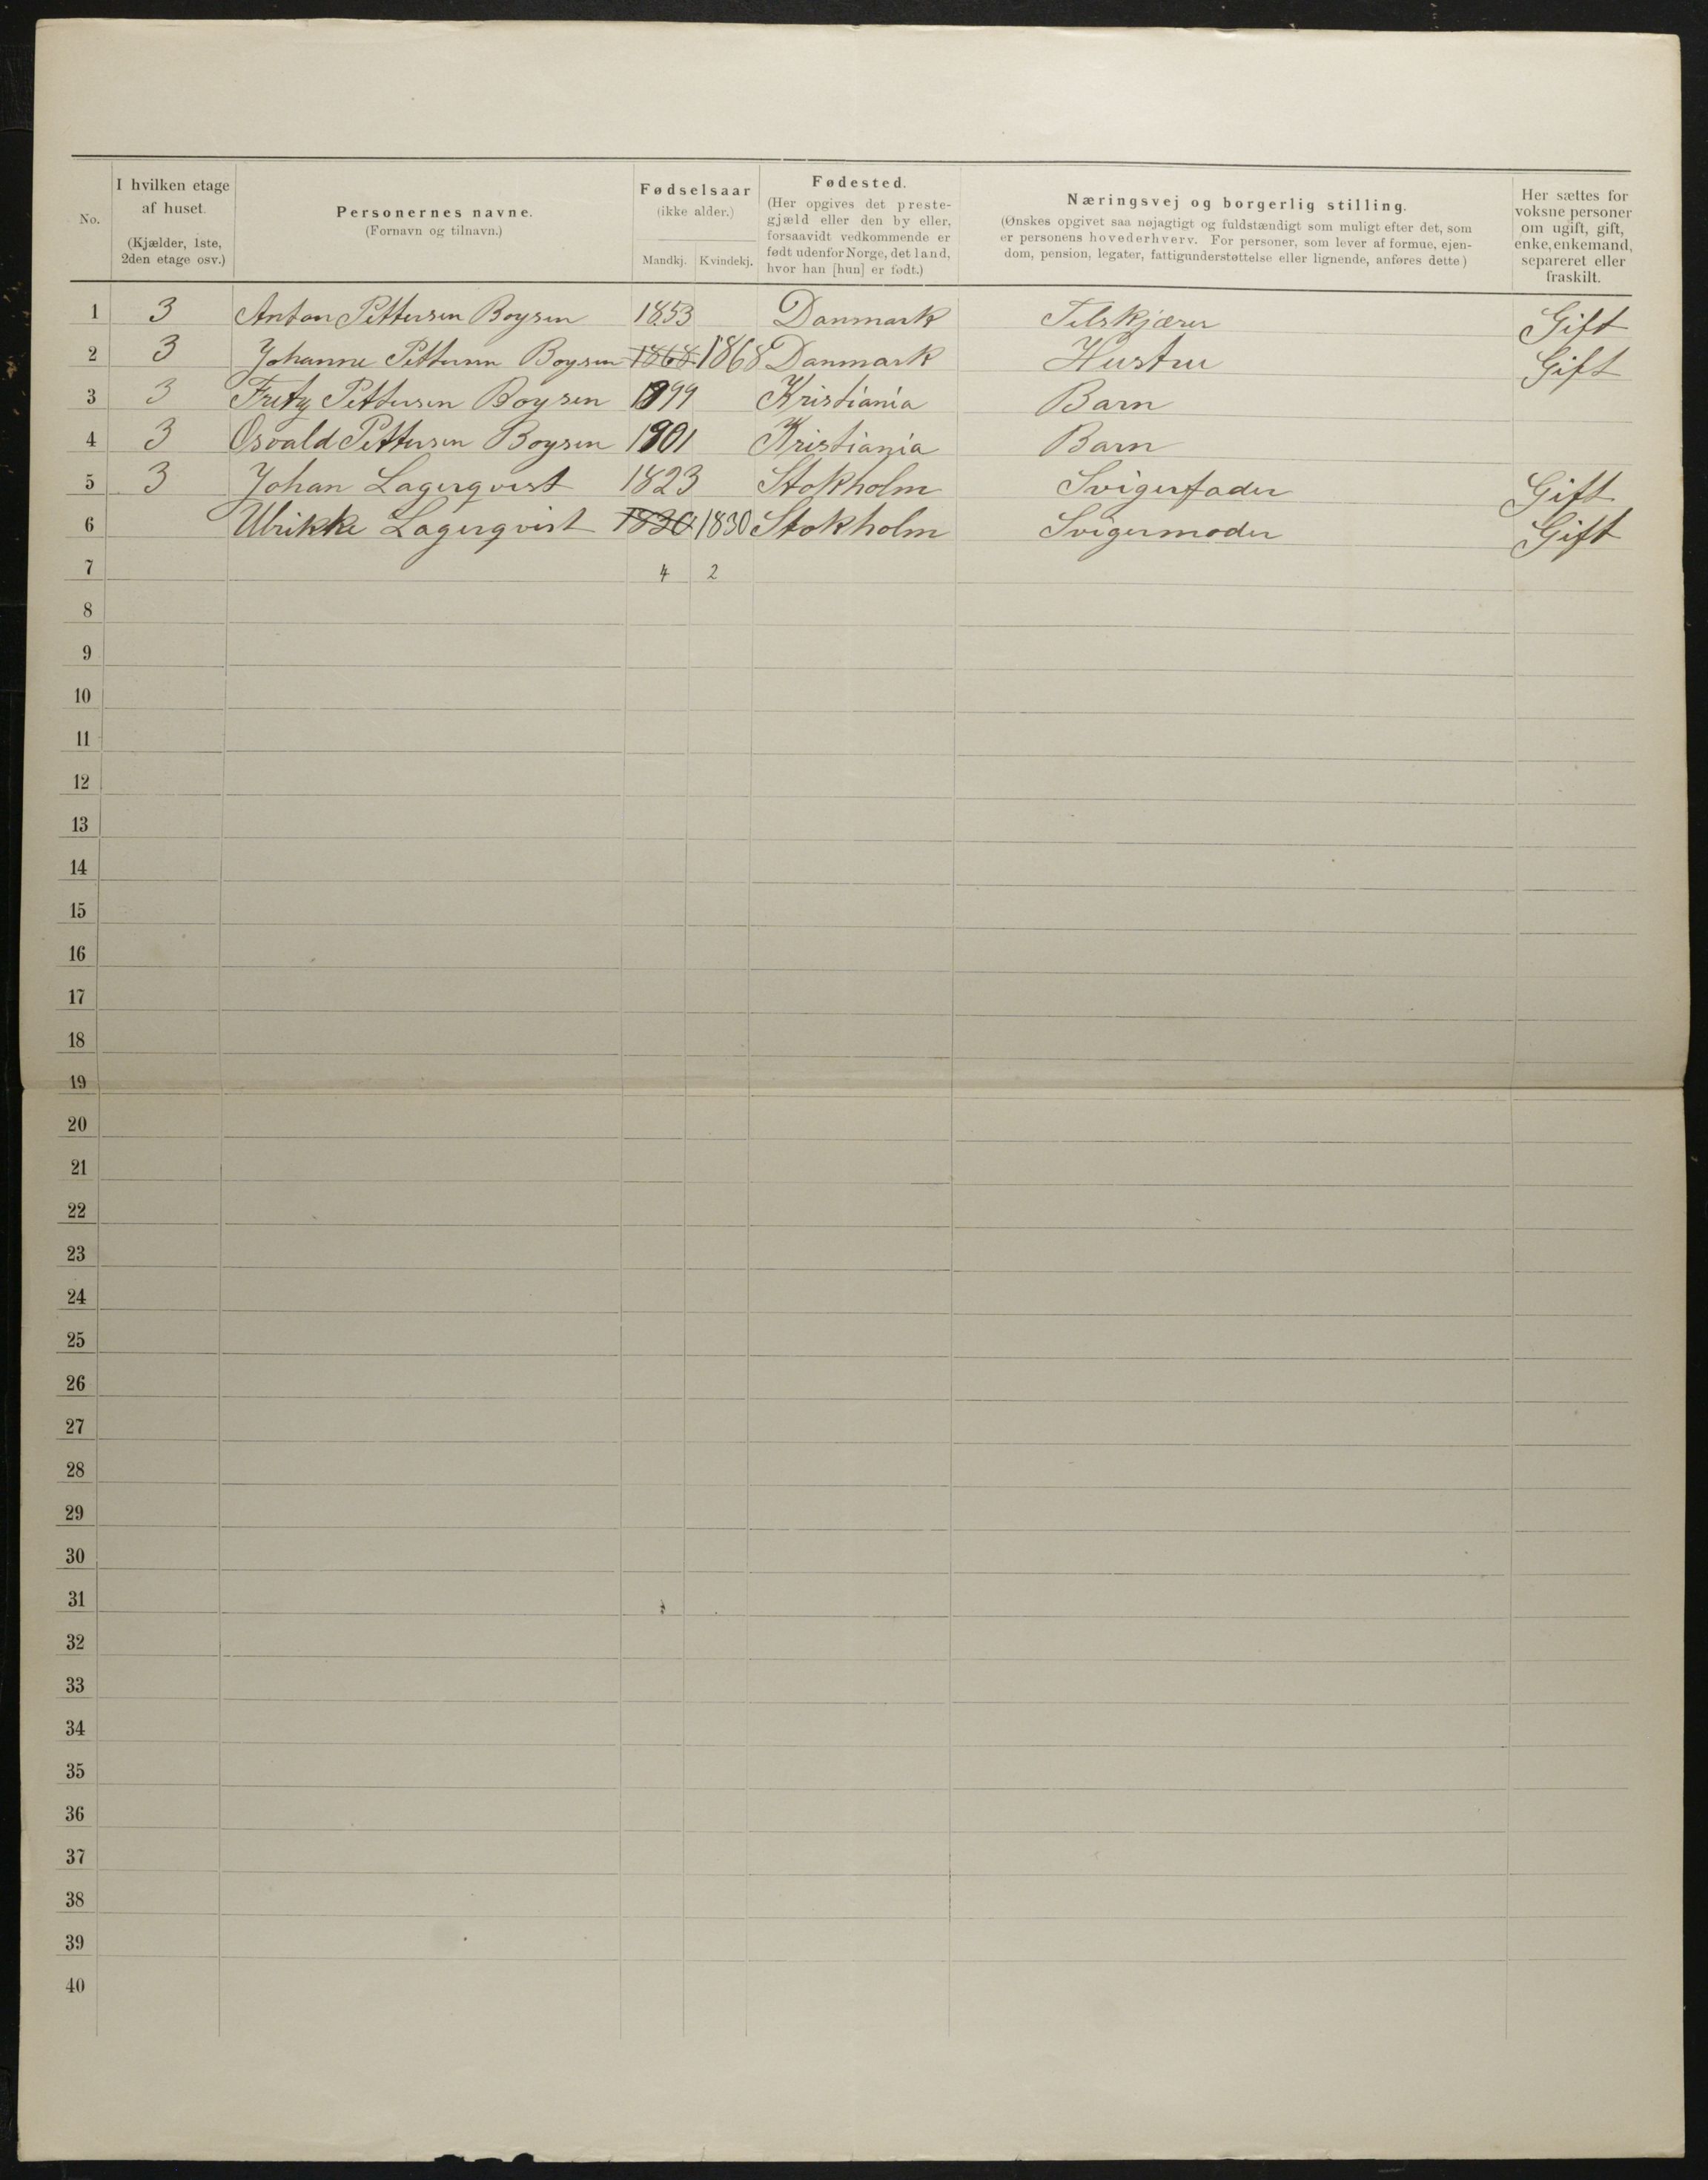 No.
I hvilken etage af huset. (Kjælder, 1ste, 2den etage osv.)
Personernes navne. (Fornavn og tilnavn.)
Fødselsaar (ikke alder.) Mandkj. Kvindekj.
Fødested. (Her opgives det prestegjæld eller den by eller, forsaavidt vedkommende er født udenfor Norge, det land, hvor han [hun] er født.)
Næringsvej og borgerlig stilling.
(Ønskes opgivet saa nøjagtigt og fuldstændigt som muligt efter det, som
er personens hovederhverv. For personer, som lever af formue, ejen-
dom, pension, legater, fattigunderstøttelse eller lignende, anføres dette)
Her sættes for voksne personer om ugift, gift, enke, enkemand, separeret eller fraskilt.
1 3 Anton Pettersen Boysen 1853 Danmark Tilskjærer Gift
2 3 Johanne Pettersen Boysen 1868 1868 Danmark Hustru Gift
3 3 Fritz Pettersen Boysen 1899 Kristiania Barn
4 3 Osvald Pettersen Boysen 1901 Kristiania Barn
5 3 Johan Lagerqvist 1823 Stokholm Svigerfader Gift
6 Ulrikke Lagerqvist 1830 1830 Stokholm Svigermoder Gift
7 4 2
8
9
10
11
12
13
14
15
16
17
18
19
20
21
22
23
24
25
26
27
28
29
30
31
32
33
34
35
36
37
38
39
40